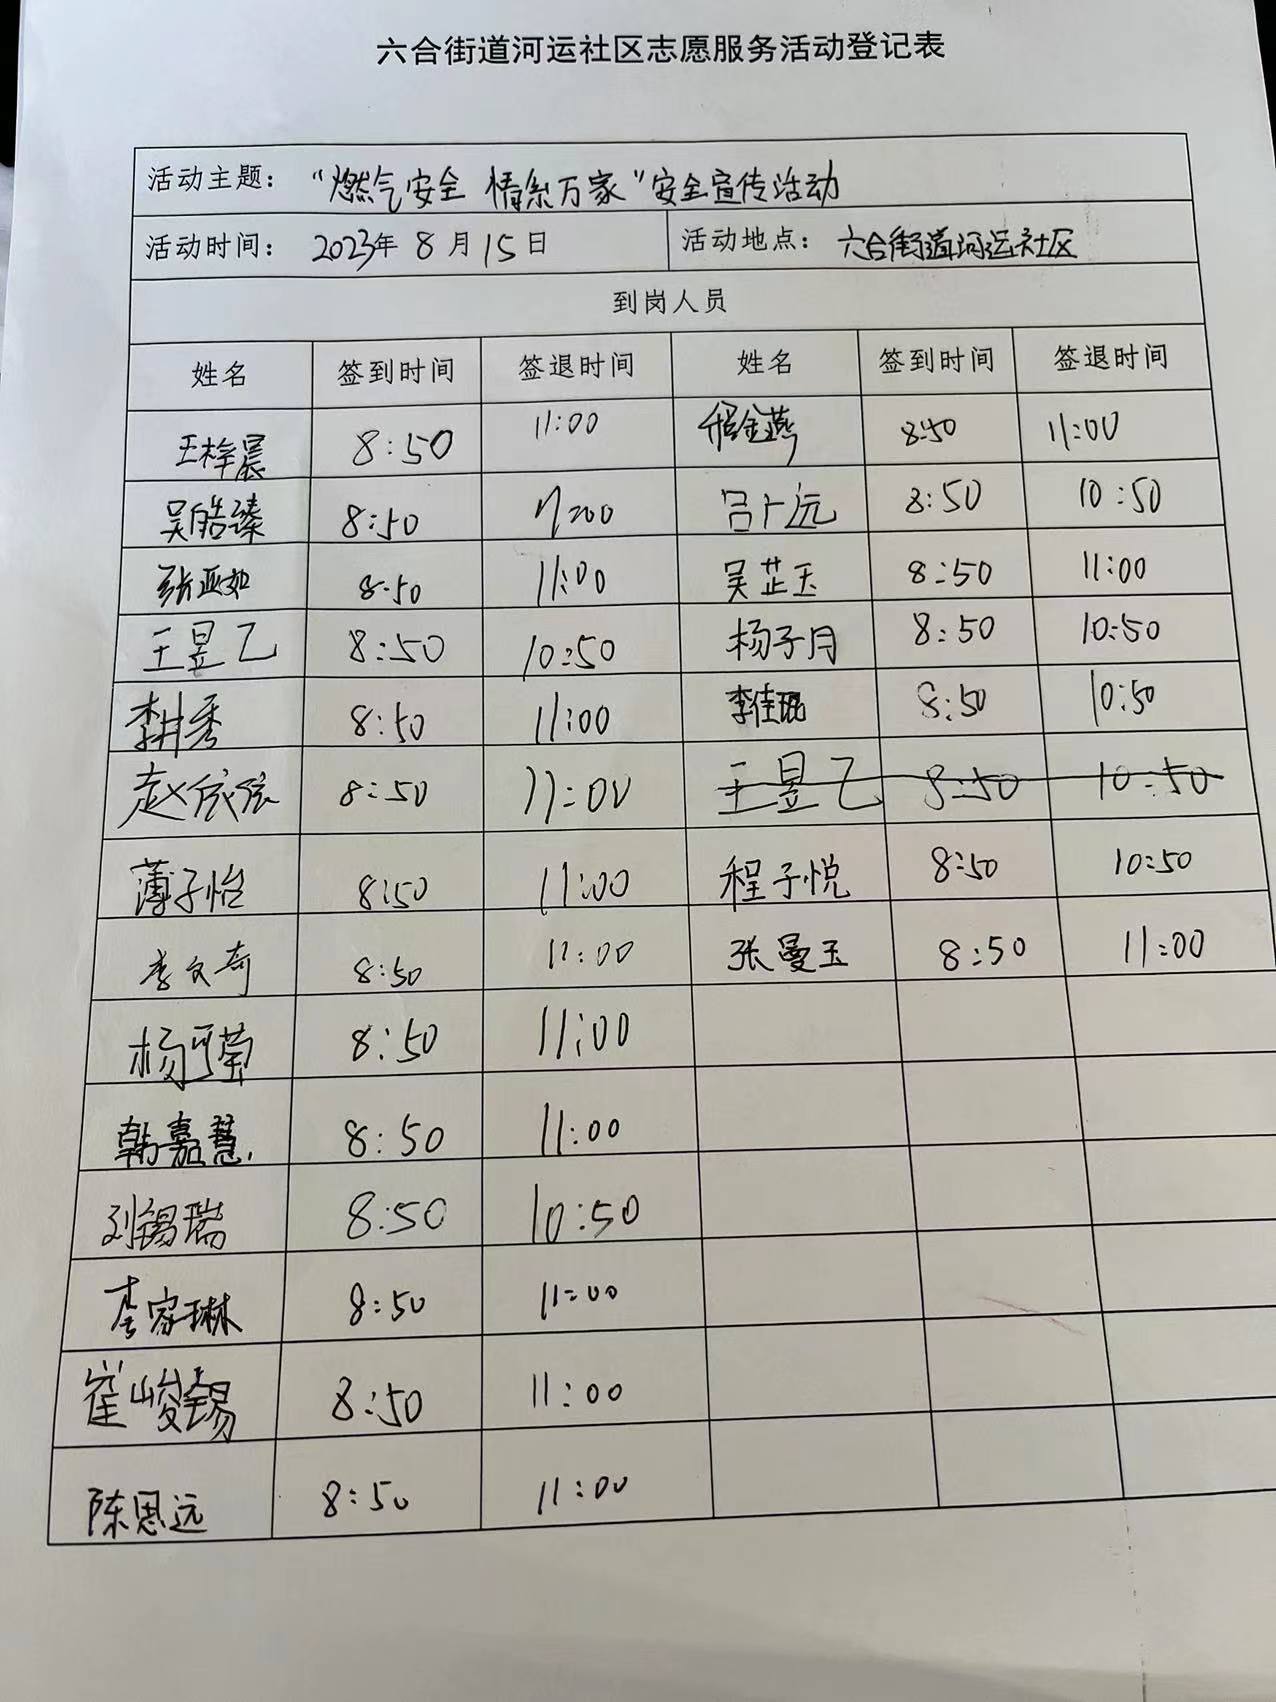 六合街道河运社区志愿服务活动登记表
活动主题: “燃气安全 情系万家”安全宣传活动
活动时间: 2023年 8 月 15 日 活动地点: 六合街道河运社区
到岗人员
姓名 签到时间 签退时间 姓名 签到时间 签退时间
王梓晨 8:50 11:00 金燕 8:50 11:00
吴皓臻 8:50 11:00 吕广远 8:50 10:50
张亚如 8:50 11:00 吴芷玉 8:50 11:00
王昱乙 8:50 10:50 杨子月 8:50 10:50
李井秀 8:50 11:00 李佳琨 8:50 10:50
赵依依 8:50 11:00 王昱乙 8:50 10:50
薄子怡 8:50 11:00 程子悦 8:50 10:50
李文奇 8:50 11:00 张曼玉 8:50 11:00
杨可莹 8:50 11:00
韩嘉慧 8:50 11:00
刘锡瑞 8:50 10:50
李家琳 8:50 11:00
崔峻锡 8:50 11:00
陈思远 8:50 11:00